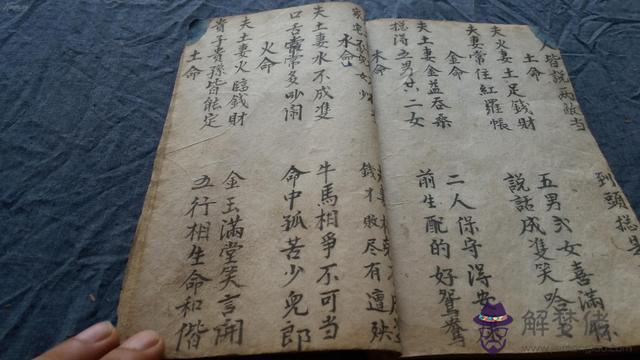 人皆說兩敵当
到頭總是
土命
夫火妻土足錢財
五男弍女喜滿
夫妻常住紅羅帳
說話成雙笑吟
金命
夫土妻金益吞桑
二人保守得安
總得五男弍二女
前生配的好鴛鴦
木命
錢才敗尽有遭殃
水命
夫土妻水不成雙
牛馬相爭不可当
口舌常常多吵鬧
命中孤苦少兒郎
火命
夫土妻火臨錢財
金玉滿堂笑言開
貴子貴孫皆能定
五行相生命和偕
土命
解夢佬